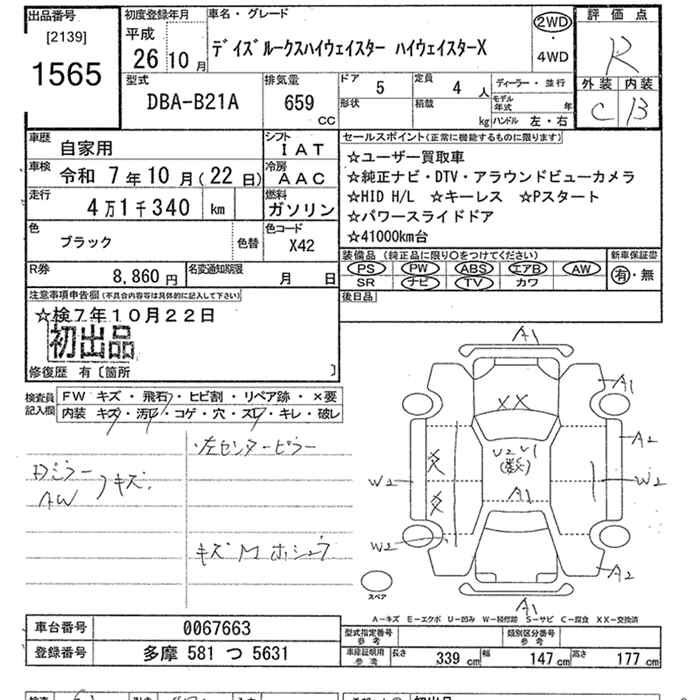 出品番号
[2139]
1565
初度登録年月
平成
26 10月
車名・グレード
デイズルークスハイウェイスター ハイウェイスターX
2WD
・
4WD
評価点
R
外装 内装
C B
型式
DBA-B21A
排気量
659
cc
ドア
5
定員
4 人
ディーラー・並行
形状
積載
kg
モデル年式 年
ハンドル 左・右
車歴
自家用
シフト
IAT
車検
令和 7年 10月(22日)
冷房
AAC
走行
4万1千340 km
燃料
ガソリン
色
ブラック
色替
色コード
X42
R券
8,860円
名変通知期限
月 日
セールスポイント(正常に機能するものに限ります)
☆ユーザー買取車
☆純正ナビ・DTV・アラウンドビューカメラ
☆HID H/L ☆キーレス ☆Pスタート
☆パワースライドドア
☆41000km台
装備品(純正品に限り○をつけてください)
PS PW ABS エアB AW
SR ナビ TV カワ
新車保証書
有・無
後日品
注意事項申告欄(不具合内容等は具体的に記入して下さい)
☆検7年10月22日
初出品
修復歴 有〔箇所 〕
検査員記入欄
FW キズ・飛石・ヒビ割・リペア跡・×要
内装 キズ・汚レ・コゲ・穴・スレ・キレ・破レ
左センターピラー
Dミラー
AW
キズ
キズM ホシュウ
A1
A1
XX
A2
U2 U1
(数)
A1
W2
W2
W2
A2
A1
スペア
A-キズ E-エクボ U-凹み W-補修跡 S-サビ C-腐食 XX-交換済
車台番号
0067663
登録番号
多摩 581 つ 5631
型式指定番号
参考
類別区分番号
参考
車庫証明用
参考
長さ 339 cm
幅 147 cm
高さ 177 cm